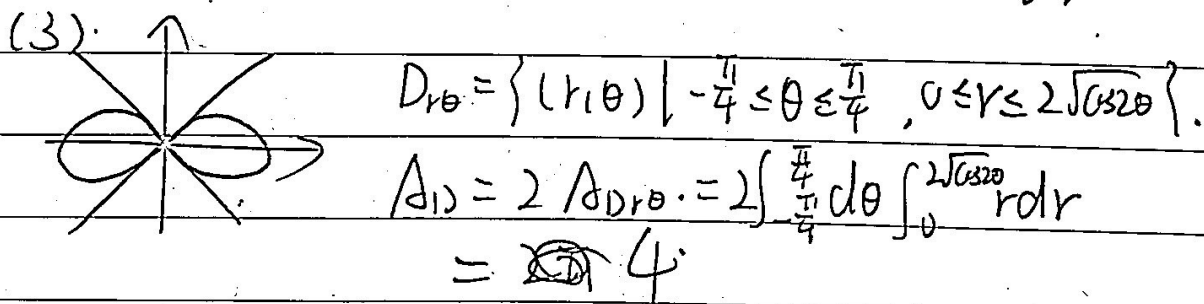 (3).
D_{rθ} = {(r,θ) | -π/4 ≤ θ ≤ π/4 , 0 ≤ r ≤ 2√cos2θ}.
A_D = 2 A_{Drθ}. = 2∫_{-π/4}^{π/4} dθ ∫_0^{2√cos2θ} r dr
= 4.